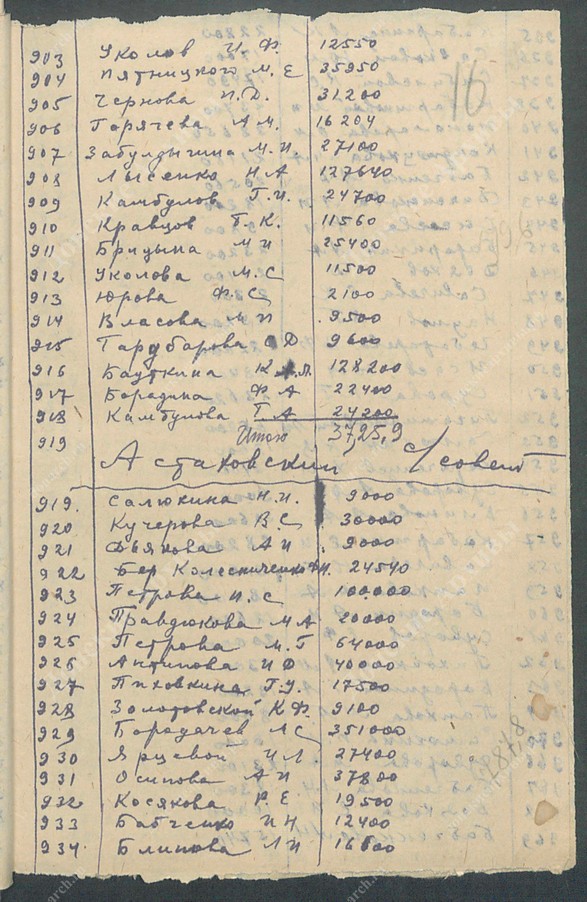 16
903 Уколов И.Ф. 12550
904 Пятницкого М.Е 35950
905 Чернова П.Д. 31200
906 Горячева А.М. 16204
907 Забулдыгина М.И. 27100
908 Лысенко Н А 127640
909 Камбулов Г.И. 24700
910 Кравцов Т.К. 11560
911 Бридына М И 25400
912 Уколова М.С 11500
913 Юрова Ф.С 2100
914 Власова М И 9500
915 Тарубарова Д 9600
916 Бауткина К 128200
917 Бородина Ф А 22400
918 Камбулова Т А 24200
919 Итого 3725,9
Астаховский с/совет
919. Салюкина Н.И. 9000
920 Кучерова В С 30000
921 Дьякова А И 9000
922 Бер Колесниченко 24540
923 Петрова И.С 100000
924 Правдюкова М А 20000
925 Петрова М.Г 64000
926 Антипова И Ф 40000
927 Пиховкина Т.У. 17500
928 Золотовской К Ф 9100
929 Бородачев Л С 351000
930 Ярцевой И Л 27400
931 Осипова А И 37800
932 Косякова Р.Е 19500
933 Бабченко И Н 12400
934 Блинова Л И